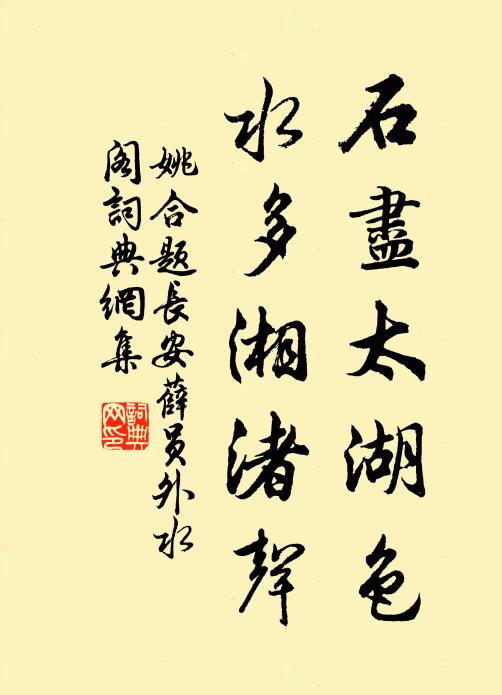 石盡太湖色
水多湘渚聲
姚合題長安薛員外水
阁詞典網集
詞典
网印